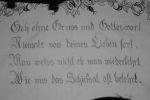 Geh ohne Gruss und Gotteswort
Niemals von deinen Lieben fort.
Man weiss nicht eh man wiederkehrt
Wie uns das Schicksal oft belehrt.